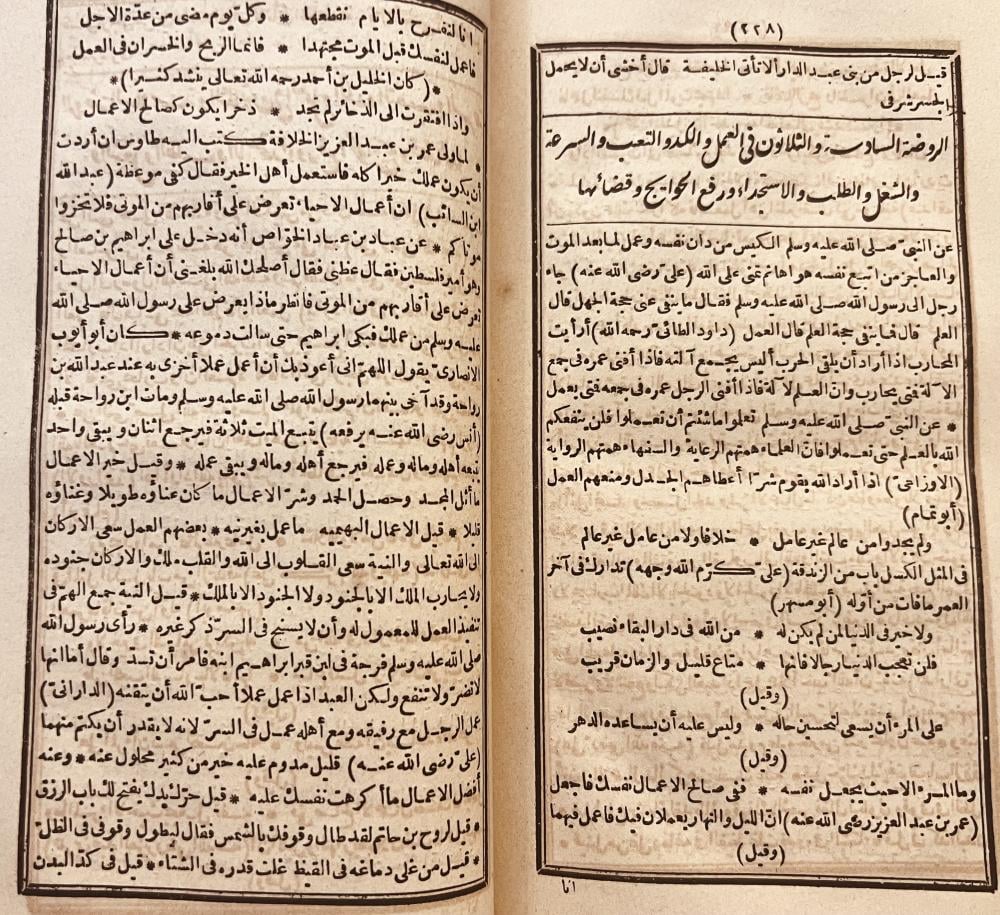 (٢٢٨)
قيل لرجل من بني عبد الدار ألا تأتي الخليفة قال أخشى أن لا يحمل
الجسر شرفي
الروضة السادسة والثلاثون في العمل والكد والتعب والسرعة
والشغل والطلب والاستجداء ورفع الحوايج وقضائها
عن النبيّ صلى الله عليه وسلم الكيس من دان نفسه وعمل لما بعد الموت
والعاجز من اتبع نفسه هواها ثم تمنى على الله (عليّ رضى الله عنه) جاء
رجل الى رسول الله صلى الله عليه وسلم فقال ما ينفى عنى حجة الجهل قال
العلم قال فما ينفى حجة العلم قال العمل (داود الطائى رحمه الله) أرأيت
المحارب اذا أراد أن يلقى الحرب أليس يجمع آلته فاذا أفنى عمره فى جمع
الآلة فمتى يحارب وانّ العلم لآلة فاذا أفنى الرجل عمره فى جمعه فمتى يعمل
* عن النبيّ صلى الله عليه وسلم تعلموا ما شئتم أن تعملوا فلن ينفعكم
الله بالعلم حتى تعملوا فانّ العلماء همتهم الرعاية والسفهاء همتهم الرواية
(الاوزاعىّ) اذا أراد الله بقوم شرّا أعطاهم الجدل ومنعهم العمل
(أبو تمام)
ولم يحمدوا من عالم غير عامل * خلافا ولا من عامل غير عالم
فى المثل الكسل باب من الزندقة (علىّ كرّم الله وجهه) تدارك فى آخر
العمر ما فات من أوّله (أبو مسهر)
ولا خير فى الدنيا لمن لم يكن له * من الله فى دار البقاء نصيب
فان تعجب الدنيا رجالا فانها * متاع قليل والزمان قريب
(وقيل)
على المرء أن يسعى لتحسين حاله * وليس عليه أن يساعده الدهر
(وقيل)
وما المرء الا حيث يجعل نفسه * ففى صالح الاعمال نفسك فاجعل
(عمر بن عبد العزيز رضى الله عنه) انّ الليل والنهار يعملان فيك فاعمل فيهما
(وقيل)
انا
انا لنفرح بالايام نقطعها * وكلّ يوم مضى من عدّة الاجل
فاعمل لنفسك قبل الموت مجتهدا * فانما الربح والخسران فى العمل
*(كان الخليل بن أحمد رحمه الله تعالى ينشد كثيرا)*
واذا افتقرت الى الذخائر لم تجد * ذخرا يكون كصالح الاعمال
* لما ولى عمر بن عبد العزيز الخلافة كتب اليه طاوس ان أردت
أن يكون عملك خيرا كله فاستعمل أهل الخير فقال كفى موعظة (عبد الله
ابن السائب) انّ أعمال الاحياء تعرض على أقاربهم من الموتى فلا تخزوا
موتاكم * عن عباد بن عباد الخوّاص أنه دخل على ابراهيم بن صالح
وهو أمير فلسطين فقال عظنى فقال أصلحك الله بلغنى أن أعمال الاحياء
تعرض على أقاربهم من الموتى فانظر ماذا يعرض على رسول الله صلى الله
عليه وسلم من عملك فبكى ابراهيم حتى سالت دموعه * كان أبو أيوب
الانصارىّ يقول اللهمّ انى أعوذ بك أن أعمل عملا أخزى به عند عبد الله بن
رواحة وقد آخى بينهما رسول الله صلى الله عليه وسلم ومات ابن رواحة قبله
(أنس رضى الله عنه يرفعه) يتبع الميت ثلاثة فيرجع اثنان ويبقى واحد
تبعه أهله وماله وعمله فيرجع أهله وماله ويبقى عمله * وقيل خير الاعمال
ما أثل المجد وحصل الحمد وشرّ الاعمال ما كان عناؤه طويلا وغناؤه
قليلا * قيل الاعمال البهيميه ما عمل بغير نيه * بعضهم العمل سعى الاركان
الى الله تعالى والنية سعى القلوب الى الله والقلب ملك والاركان جنوده
ولا يحارب الملك الا بالجنود ولا الجنود الا بالملك * قيل النية جمع الهمّ فى
تنفيذ العمل للمعمول له وأن لا يسنح فى السرّ ذكر غيره * رأى رسول الله
صلى الله عليه وسلم فرجة فى لبن قبر ابراهيم ابنه فأمر أن تسدّ وقال أما انها
لا تضرّ ولا تنفع ولكن العبد اذا عمل عملا أحبّ الله أن يتقنه (الدارانىّ)
عمل الرجل مع رفيقه ومع أهله عمل فى السرّ لانه لا يقدر أن يكتم منهما
(علىّ رضى الله عنه) قليل مدوم عليه خير من كثير مملول عنه * وعنه
أفضل الاعمال ما أكرهت نفسك عليه * قيل حرّك يدك يفتح لك باب الرزق
* قيل لروح بن حاتم لقد طال وقوفك بالشمس فقال ليطول وقوفى فى الظلّ
* قيل من غلى دماغه فى القيظ غلت قدره فى الشتاء * قيل فى كدّ البدن